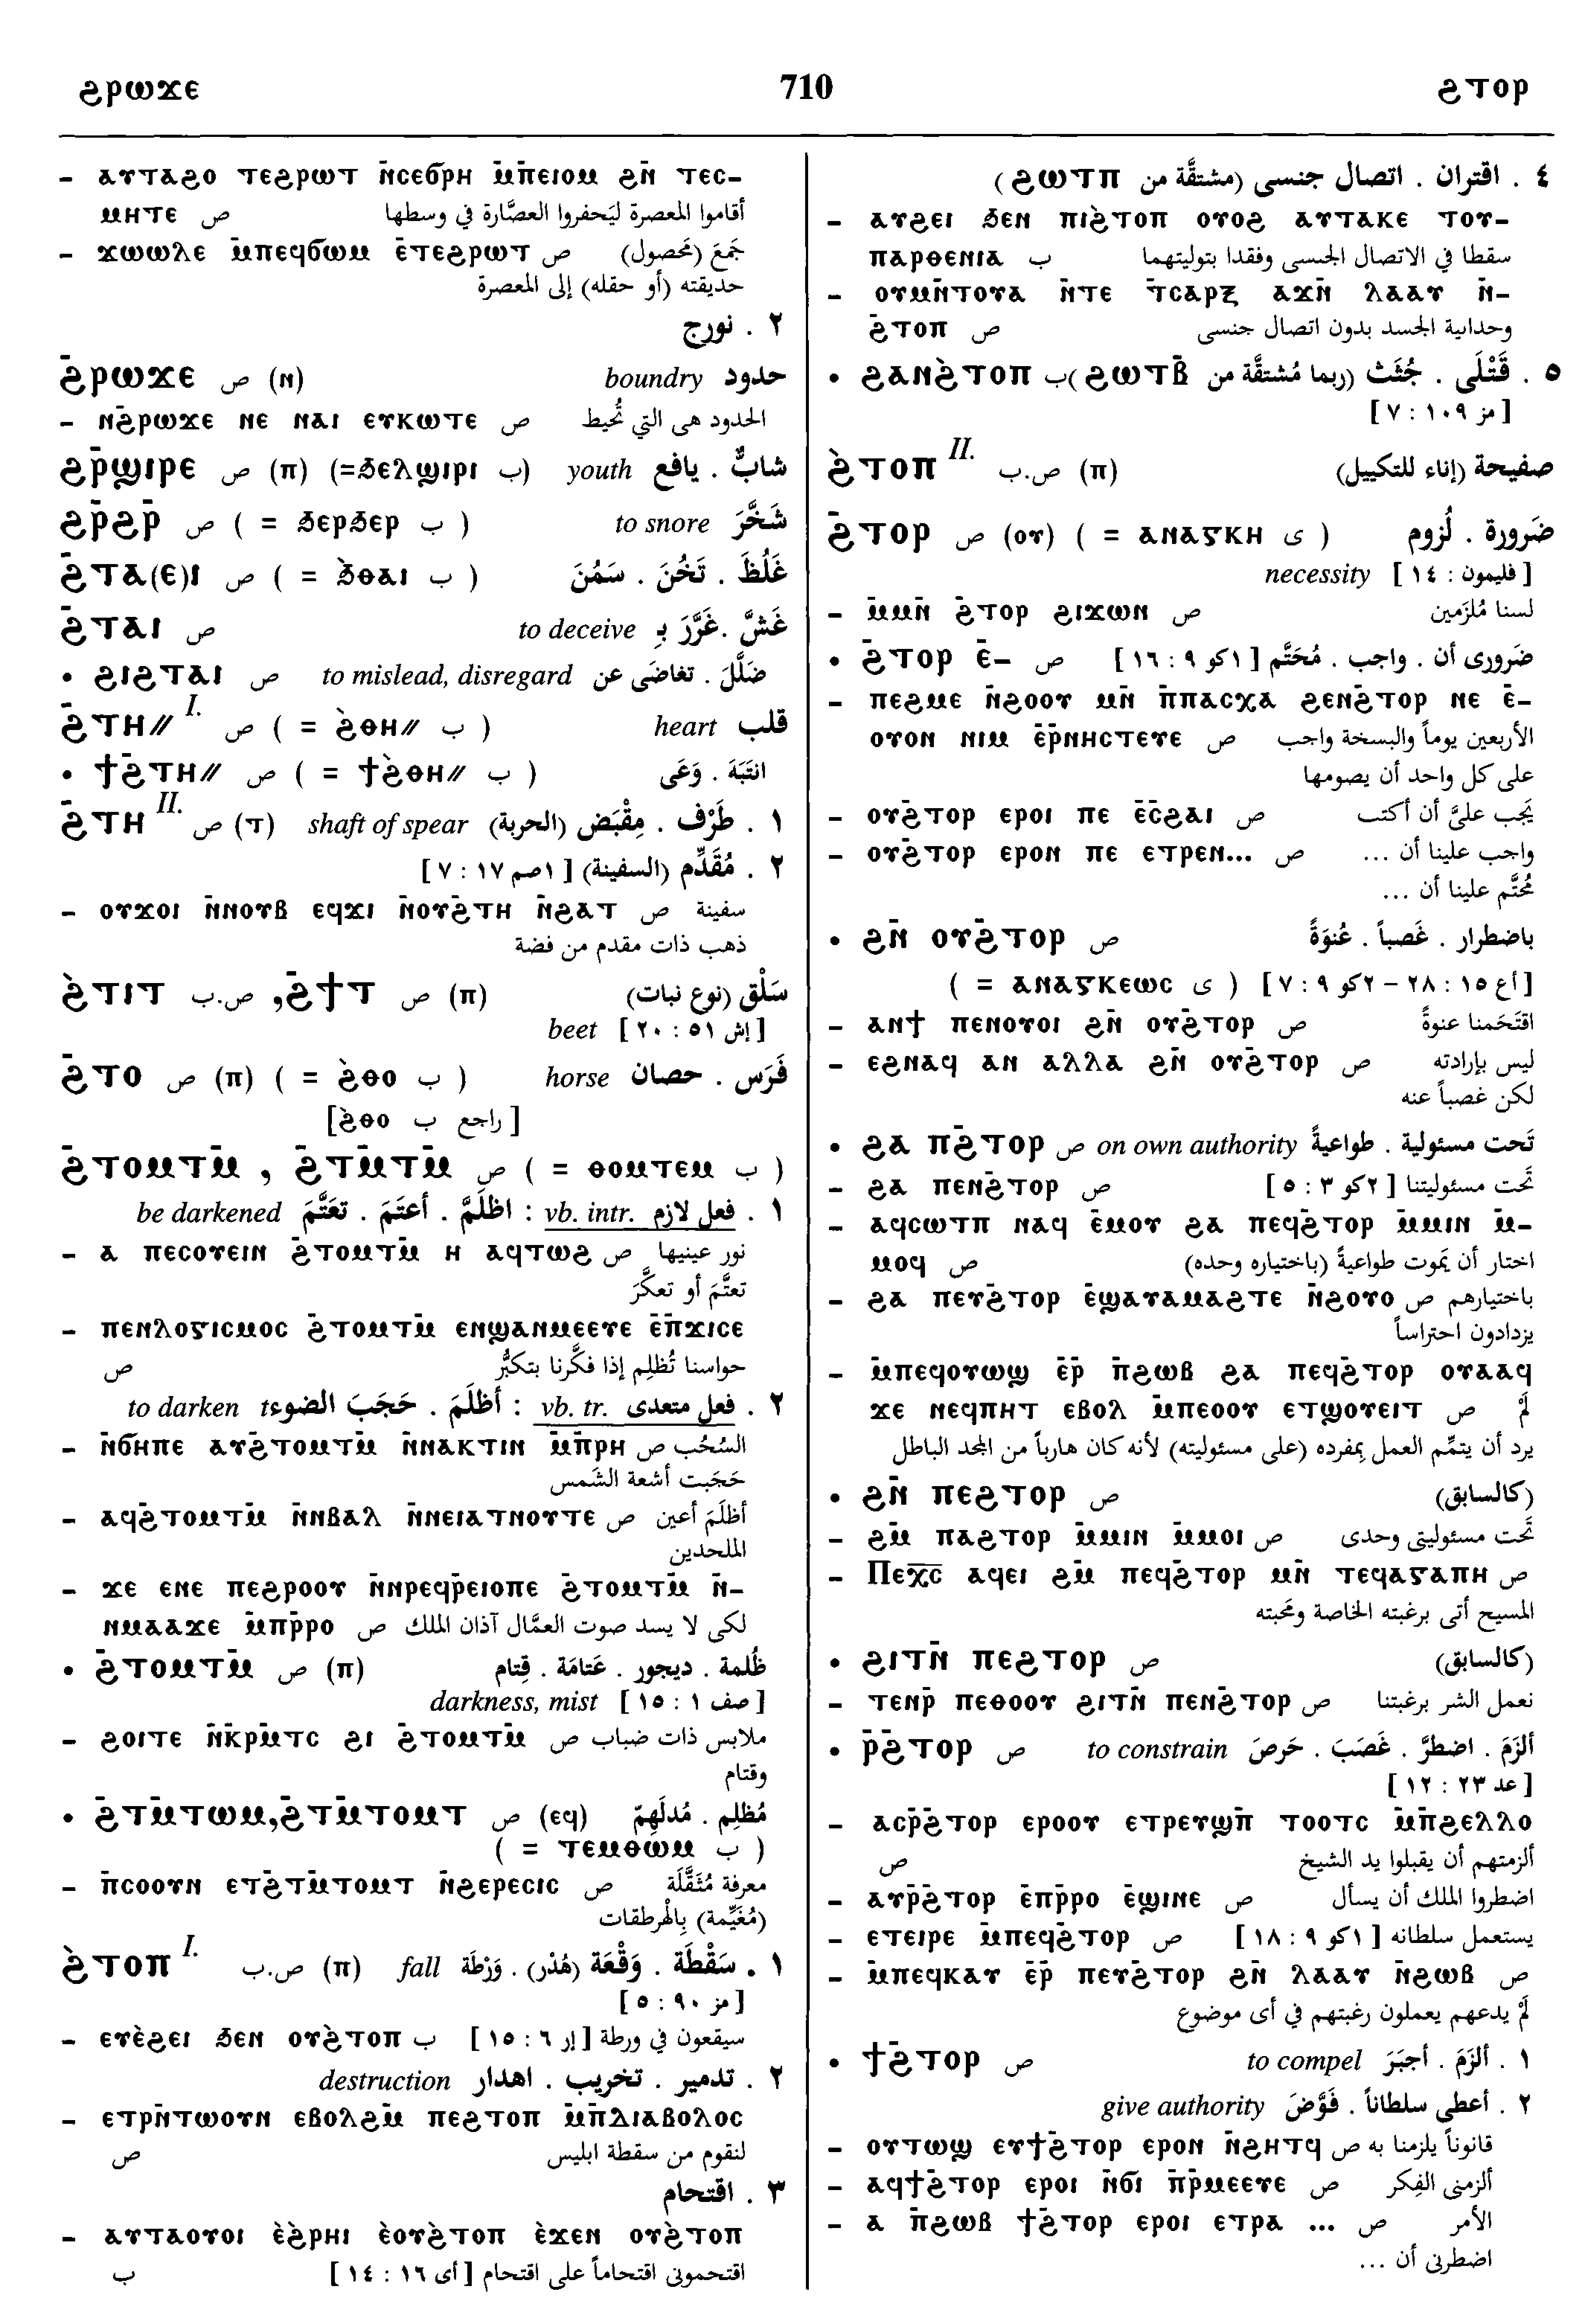 ϩⲣⲱϫⲉ 710 ϩⲧⲟⲣ
– ⲁⲩⲧⲁϩⲟ ⲧⲉϩⲣⲱⲧ ⲛ̄ⲥⲉϭⲣⲏ ⲙ̄ⲡ̄ⲉⲓⲟⲙ ϩⲛ̄ ⲧⲉⲥ–
ⲙⲏⲧⲉ ص أقاموا المعصرة ليَحفروا العصَّارة في وسطها
– ϫⲱⲱⲗⲉ ⲙ̄ⲡⲉϥϭⲱⲙ ⲉ̄ⲧⲉϩⲣⲱⲧ ص جَمَعَ (مَحصول)
حديقته (أو حقله) إلى المعصرة
٢ . نورج
ϩ̄ⲣⲱϫⲉ ص (ⲛ) boundry حدود
– ⲛϩ̄ⲣⲱϫⲉ ⲛⲉ ⲛⲁⲓ ⲉⲩⲕⲱⲧⲉ ص الحدود هى التي تُحيط
ϩⲣ̄ϣⲓⲣⲉ ص (ⲡ) (=ϧⲉⲗϣⲓⲣⲓ ب) youth شابٌّ . يافع
ϩⲣ̄ϩⲣ̄ ص ( = ϧⲉⲣϧⲉⲣ ب ) to snore شَخَّرَ
ϩ̄ⲧⲁ(ⲉ)ⲓ ص ( = ϧ̀ⲑⲁⲓ ب ) غَلُظَ . تَخُنَ . سَمُنَ
ϩ̄ⲧⲁⲓ ص to deceive غَشَّ .غَرَّرَ بِـ
• ϩⲓϩⲧⲁⲓ ص to mislead, disregard ضَلَّلَ . تغاضَى عن
ϩ̄ⲧⲏ⫽ I. ص ( = ϩ̀ⲑⲏ⫽ ب ) heart قلب
• ϯϩ̄ⲧⲏ⫽ ص ( = ϯϩ̀ⲑⲏ⫽ ب ) انتَبَهَ . وَعَى
ϩ̄ⲧⲏ II. ص (ⲧ) shaft of spear ١ . طَرْف . مِقْبَض (الحربة)
٢ . مُقَدِّم (السفينة) [ ١صم ١٧ : ٧ ]
– ⲟⲩϫⲟⲓ ⲛ̄ⲛⲟⲩⲃ ⲉϥϫⲓ ⲛ̄ⲟⲩϩ̄ⲧⲏ ⲛ̄ϩⲁⲧ ص سفينة
ذهب ذات مقدم من فضة
ϩ̀ⲧⲓⲧ ص.ب ,ϩ̄ϯⲧ ص (ⲡ) سَلْق (نوع نبات)
beet [ إش ٥١ : ٢٠ ]
ϩ̄ⲧⲟ ص (ⲡ) ( = ϩ̀ⲑⲟ ب ) horse فَرَس . حصان
[ راجع ب ϩ̀ⲑⲟ]
ϩ̄ⲧⲟⲙⲧⲙ̄ , ϩ̄ⲧⲙ̄ⲧⲙ̄ ص ( = ⲑⲟⲙⲧⲉⲙ ب )
be darkened ١ . فعل لازم vb. intr. : اظلَمَّ . أعتَمَ . تعَتَّمَ
– ⲁ ⲡⲉⲥⲟⲩⲉⲓⲛ ϩ̄ⲧⲟⲙⲧⲙ̄ ⲏ ⲁϥⲧⲱϩ ص نور عينيها
تعتَّمَ أو تعكَّرَ
– ⲡⲉⲛⲗⲟⲅⲓⲥⲙⲟⲥ ϩ̄ⲧⲟⲙⲧⲙ̄ ⲉⲛϣⲁⲛⲙⲉⲉⲩⲉ ⲉ̄ⲡ̄ϫⲓⲥⲉ
ص حواسنا تُظلِم إذا فكَّرنا بتكبُّر
to darken ٢ . فعل متعدى vb. tr. : أظلَمَ . حَجَبَ الضوءt
– ⲛ̄ϭⲏⲡⲉ ⲁⲩϩ̄ⲧⲟⲙⲧⲙ̄ ⲛ̄ⲛⲁⲕⲧⲓⲛ ⲙ̄ⲡ̄ⲣⲏ ص السُحُب
حَجَبت أشعة الشَمس
– ⲁϥϩ̄ⲧⲟⲙⲧⲙ̄ ⲛ̄ⲛⲃⲁⲗ ⲛ̄ⲛⲉⲓⲁⲧⲛⲟⲩⲧⲉ ص أظلَمَ أعين
الملحدين
– ϫⲉ ⲉⲛⲉ ⲡⲉϩⲣⲟⲟⲩ ⲛ̄ⲛⲣⲉϥⲣ̄ⲉⲓⲟⲡⲉ ϩ̄ⲧⲟⲙⲧⲙ̄ ⲛ̄–
ⲛⲙⲁⲁϫⲉ ⲙ̄ⲡⲣ̄ⲣⲟ ص لكى لا يسد صوت العمَّال آذان الملك
• ϩ̄ⲧⲟⲙⲧⲙ̄ ص (ⲡ) ظُلمة . ديجور . عَتامَة . قِتام
darkness, mist [ صف ١ : ١٥ ]
– ϩⲟⲓⲧⲉ ⲛ̄ⲕⲣⲙ̄ⲧⲥ ϩⲓ ϩ̄ⲧⲟⲙⲧⲙ̄ ص ملابس ذات ضباب
وقتام
• ϩ̄ⲧⲙ̄ⲧⲱⲙ,ϩ̄ⲧⲙ̄ⲧⲟⲙⲧ ص (ⲉϥ) مُظلِم . مُدلَهِمّ
( = ⲧⲉⲙⲑⲱⲙ ب )
– ⲡ̄ⲥⲟⲟⲩⲛ ⲉⲧϩ̄ⲧⲙ̄ⲧⲟⲙⲧ ⲛ̄ϩⲉⲣⲉⲥⲓⲥ ص معرفة مُثَقَّلَة
(مُغَيِّمة) بِالهرطقات
ϩ̀ⲧⲟⲡ I. ص.ب (ⲡ) fall ١ . سَقْطَة . وَقْعَة (هُدْر) . وَرْطَة
[ مز ٩٠ : ٥ ]
– ⲉⲩⲉ̀ϩⲉⲓ ϧⲉⲛ ⲟⲩϩ̀ⲧⲟⲡ ب سيقعون في ورطة [ إر ٦ : ١٥ ]
destruction ٢ . تدمير . تخريب . اهدار
– ⲉⲧⲣⲛ̄ⲧⲱⲟⲩⲛ ⲉⲃⲟⲗϩⲙ̄ ⲡⲉϩⲧⲟⲡ ⲙ̄ⲡ̄ⲇⲓⲁⲃⲟⲗⲟⲥ
ص لنقوم من سقطة ابليس
٣ . اقتحام
– ⲁⲩⲧⲁⲟⲩⲟⲓ ⲉ̀ϩ̀ⲣⲏⲓ ⲉ̀ⲟⲩϩ̀ⲧⲟⲡ ⲉ̀ϫⲉⲛ ⲟⲩϩ̀ⲧⲟⲡ
ب اقتحمونى اقتحاماً على اقتحام [ أى ١٦ : ١٤ ]
٤ . اقتران . اتصال جنسى (مشتقَّة من ϩⲱⲧⲡ )
– ⲁⲩϩⲉⲓ ϧⲉⲛ ⲡⲓϩ̀ⲧⲟⲡ ⲟⲩⲟϩ ⲁⲩⲧⲁⲕⲉ ⲧⲟⲩ–
ⲡⲁⲣⲑⲉⲛⲓⲁ ب سقطا في الاتصال الجنسى وفقدا بتوليتهما
– ⲟⲩⲙⲛ̄ⲧⲟⲩⲁ ⲛ̄ⲧⲉ ⲧ̄ⲥⲁⲣⲝ ⲁϫⲛ̄ ⲗⲁⲁⲩ ⲛ̄–
ϩ̄ⲧⲟⲡ ص وحدانية الجسد بدون اتصال جنسى
• ϩⲁⲛϩ̀ⲧⲟⲡ ب ٥ . قَتْلَى . جُثَث (ربما مُشتقَّة من ϩⲱⲧⲃ̄)
[ مز ١٠٩ : ٧ ]
ϩ̀ⲧⲟⲡ II. ص.ب (ⲡ) صفيحة (إناء للتكييل)
ϩ̄ⲧⲟⲣ ص (ⲟⲩ) ( = ⲁⲛⲁⲅⲕⲏ ى ) ضَرورة . لُزوم
necessity [ فليمون : ١٤ ]
– ⲙ̄ⲙⲛ̄ ϩ̄ⲧⲟⲣ ϩⲓϫⲱⲛ ص لسنا مُلزَمين
• ϩ̄ⲧⲟⲣ ⲉ̄– ص ضرورى أن . واجب . مُحَتَّم [ ١كو ٩ : ١٦ ]
– ⲡⲉϩⲙⲉ ⲛ̄ϩⲟⲟⲩ ⲙⲛ̄ ⲡ̄ⲡⲁⲥⲭⲁ ϩⲉⲛϩ̄ⲧⲟⲣ ⲛⲉ ⲉ̄–
ⲟⲩⲟⲛ ⲛⲓⲙ ⲉ̄ⲣ̄ⲛⲏⲥⲧⲉⲩⲉ ص الأربعين يوماً والبسخة واجب
على كل واحد أن يصومها
– ⲟⲩϩ̄ⲧⲟⲣ ⲉⲣⲟⲓ ⲡⲉ ⲉ̄ⲥ̄ϩⲁⲓ ص يَجب علىَّ أن أكتب
– ⲟⲩϩ̄ⲧⲟⲣ ⲉⲣⲟⲛ ⲡⲉ ⲉⲧⲣⲉⲛ... ص واجب علينا أن ...
مُحتَّم علينا أن ...
• ϩⲛ̄ ⲟⲩϩ̄ⲧⲟⲣ ص باضطرار . غَصباً . عُنوَةً
( = ⲁⲛⲁⲅⲕⲉⲱⲥ ى ) [ أع ١٥ : ٢٨ – ٢كو ٩ : ٧ ]
– ⲁⲛϯ ⲡⲉⲛⲟⲩⲟⲓ ϩⲛ̄ ⲟⲩϩ̄ⲧⲟⲣ ص اقتَحَمنا عنوةً
– ⲉϩⲛⲁϥ ⲁⲛ ⲁⲗⲗⲁ ϩⲛ̄ ⲟⲩϩ̄ⲧⲟⲣ ص ليس بإرادته
لكن غصباً عنه
• ϩⲁ ⲡϩ̄ⲧⲟⲣ ص on own authority تَحت مسئولية . طواعيةً
– ϩⲁ ⲡⲉⲛϩ̄ⲧⲟⲣ ص تَحت مسئوليتنا [ ٢كو ٣ : ٥ ]
– ⲁϥⲥⲱⲧⲡ ⲛⲁϥ ⲉ̄ⲙⲟⲩ ϩⲁ ⲡⲉϥϩ̄ⲧⲟⲣ ⲙ̄ⲙⲓⲛ ⲙ̄–
ⲙⲟϥ ص اختار أن يَموت طواعيةً (باختياره وحده)
– ϩⲁ ⲡⲉⲩϩ̄ⲧⲟⲣ ⲉ̄ϣⲁⲩⲁⲙⲁϩⲧⲉ ⲛ̄ϩⲟⲩⲟ ص باختيارهم
يزدادون احتراساً
– ⲙ̄ⲡⲉϥⲟⲩⲱϣ ⲉ̄ⲣ̄ ⲡ̄ϩⲱⲃ ϩⲁ ⲡⲉϥϩ̄ⲧⲟⲣ ⲟⲩⲁⲁϥ
ϫⲉ ⲛⲉϥⲡⲏⲧ ⲉⲃⲟⲗ ⲙ̄ⲡⲉⲟⲟⲩ ⲉⲧϣⲟⲩⲉⲓⲧ ص لَمْ
يرد أن يتمِّم العمل بِمفرده (على مسئوليته) لأنه كان هارباً من المجد الباطل
• ϩⲛ̄ ⲡⲉϩⲧⲟⲣ ص (كالسابق)
– ϩⲙ̄ ⲡⲁϩⲧⲟⲣ ⲙ̄ⲙⲓⲛ ⲙ̄ⲙⲟⲓ ص تَحت مسئوليتى وحدى
– Ⲡⲉⲭ̄ⲥ̄ ⲁϥⲉⲓ ϩⲙ̄ ⲡⲉϥϩ̄ⲧⲟⲣ ⲙⲛ̄ ⲧⲉϥⲁⲅⲁⲡⲏ ص
المسيح أتى برغبته الخاصة ومَحبته
• ϩⲓⲧⲛ̄ ⲡⲉϩⲧⲟⲣ ص (كالسابق)
– ⲧⲉⲛⲣ̄ ⲡⲉⲑⲟⲟⲩ ϩⲓⲧⲛ̄ ⲡⲉⲛϩ̄ⲧⲟⲣ ص نعمل الشر برغبتنا
• ⲣ̄ϩ̄ⲧⲟⲣ ص to constrain ألزَمَ . اضطرَّ . غَصَبَ . حَرِصَ
[ عد ٢٣ : ١٢ ]
– ⲁⲥⲣ̄ϩ̄ⲧⲟⲣ ⲉⲣⲟⲟⲩ ⲉⲧⲣⲉⲩϣⲡ̄ ⲧⲟⲟⲧⲥ ⲙ̄ⲡ̄ϩⲉⲗⲗⲟ
ص ألزمتهم أن يقبلوا يد الشيخ
– ⲁⲩⲣ̄ϩ̄ⲧⲟⲣ ⲉ̄ⲡⲣ̄ⲣⲟ ⲉ̄ϣⲓⲛⲉ ص اضطروا الملك أن يسأل
– ⲉⲧⲉⲓⲣⲉ ⲙ̄ⲡⲉϥϩ̄ⲧⲟⲣ ص يستعمل سلطانه [ ١كو ٩ : ١٨ ]
– ⲙ̄ⲡⲉϥⲕⲁⲩ ⲉ̄ⲣ̄ ⲡⲉⲩϩ̄ⲧⲟⲣ ϩⲛ̄ ⲗⲁⲁⲩ ⲛ̄ϩⲱⲃ ص
لَمْ يدعهم يعملون رغبتهم في أى موضوع
• ϯϩ̄ⲧⲟⲣ ص to compel ١ . ألزَمَ . أجبَرَ
give authority ٢ . أعطى سلطاناً . فَوَّضَ
– ⲟⲩⲧⲱϣ ⲉⲩϯϩ̄ⲧⲟⲣ ⲉⲣⲟⲛ ⲛ̄ϩⲏⲧϥ ص قانوناً يلزمنا به
– ⲁϥϯϩ̄ⲧⲟⲣ ⲉⲣⲟⲓ ⲛ̄ϭⲓ ⲡ̄ⲣ̄ⲙⲉⲉⲩⲉ ص ألزمنى الفِكر
– ⲁ ⲡ̄ϩⲱⲃ ϯϩ̄ⲧⲟⲣ ⲉⲣⲟⲓ ⲉⲧⲣⲁ ... ص الأمر
اضطرنى أن ...